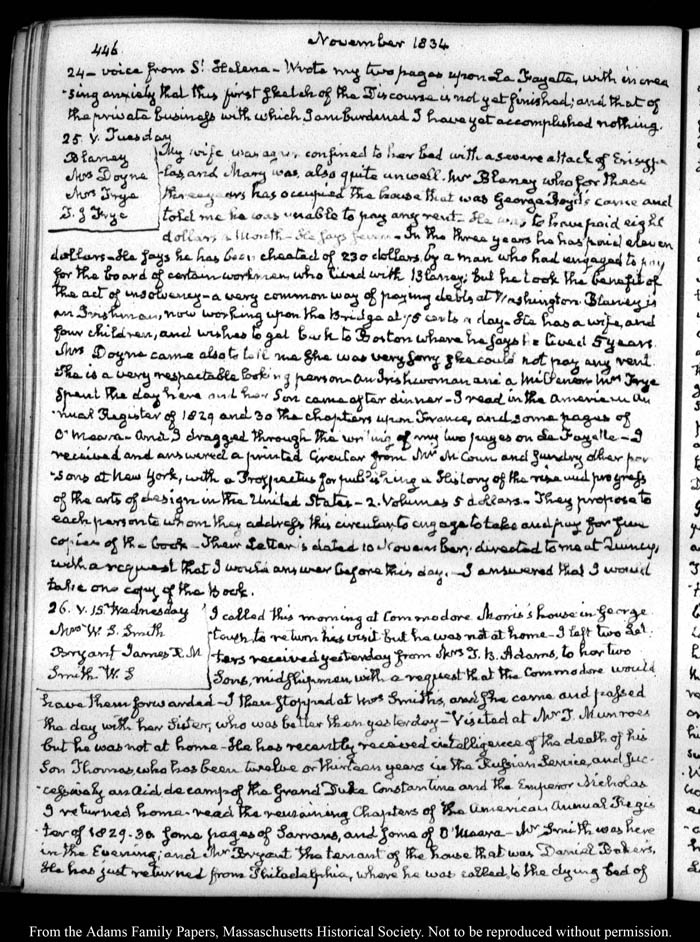 446
November 1834
24— voice from St. Helena— Wrote my two pages upon La Fayette, with increa
-sing anxiety that this first sketch of the Discourse is not yet finished; and that of
the private business with which I am burdened I have yet accomplished nothing.
25. V. Tuesday
Blaney
Mrs Doyne
Mrs Frye
T. J Frye
My wife was again confined to her bed with a severe attack of Erisype
-las, and Mary was, also quite unwell. Mr Blaney who for these
three years has occupied the house that was George Boyd's came and
told me he was unable to pay any rent. He was to have paid eight
dollars a Month— He says seven— In the three years he has paid eleven
dollars— He says he has been cheated of 230 dollars by a man who had engaged to pay
for the board of certain workmen who lived with Blaney; but he took the benefit of
the act of insolvency— a very common way of paying debts at Washington. Blaney is
an Irishman, now working upon the Bridge at 75 cents a day. He has a wife, and
four children, and wishes to get back to Boston where he says he lived 5 years.
Mrs Doyne came also to tell me she was very sorry she could not pay any rent.
She is a very respectable looking person— an Irishwoman and a Millener. Mrs Frye
spent the day here and her Son came after dinner— I read in the American An
-nual Register of 1829 and 30 the chapters upon France, and some pages of
O'Meara— And I dragged through the writing of my two pages on La Fayette— I
received and answered a printed Circular from Mr McCoun and sundry other per
-sons at New York, with a Prospectus for publishing a History of the rise and progress
of the arts of design in the United States— 2. Volumes 5 dollars— They propose to
each person to whom they address this circular to engage to take and pay for five
copies of the book— Their Letter is dated 10 November, directed to me at Quincy,
with a request that I would answer before this day.— I answered that I would
take one copy of the Book.
26. V. 15. Wednesday
Mrs W. S. Smith
Bryant James R. M
Smith W. S
I called this morning at Commodore Morris's house in George
-town to return his visit but he was not at home— I left two Let
-ters received yesterday from Mrs T. B. Adams, to her two
Sons, midshipmen, with a request that the Commodore would
have them forwarded— I then stopped at Mrs Smith's, and she came and passed
the day with her Sister, who was better than yesterday— Visited at Mr T. Munroes
but he was not at home— He has recently received intelligence of the death of his
Son Thomas, who has been twelve or thirteen years in the Russian Service, and suc-
-cessively an Aid de camp of the Grand Duke Constantine and the Emperor Nicholas
I returned home— read the remaining Chapters of the American Annual Regis
-ter of 1829-30 some pages of Sarrans, and some of O'Meara— Mr Smith was here
in the Evening; and Mr Bryant the tenant of the house that was Daniel Baker's,
He has just returned from Philadelphia, where he was called, to the dying bed of
From the Adams Family Papers, Massachusetts Historical Society. Not to be reproduced without permission.